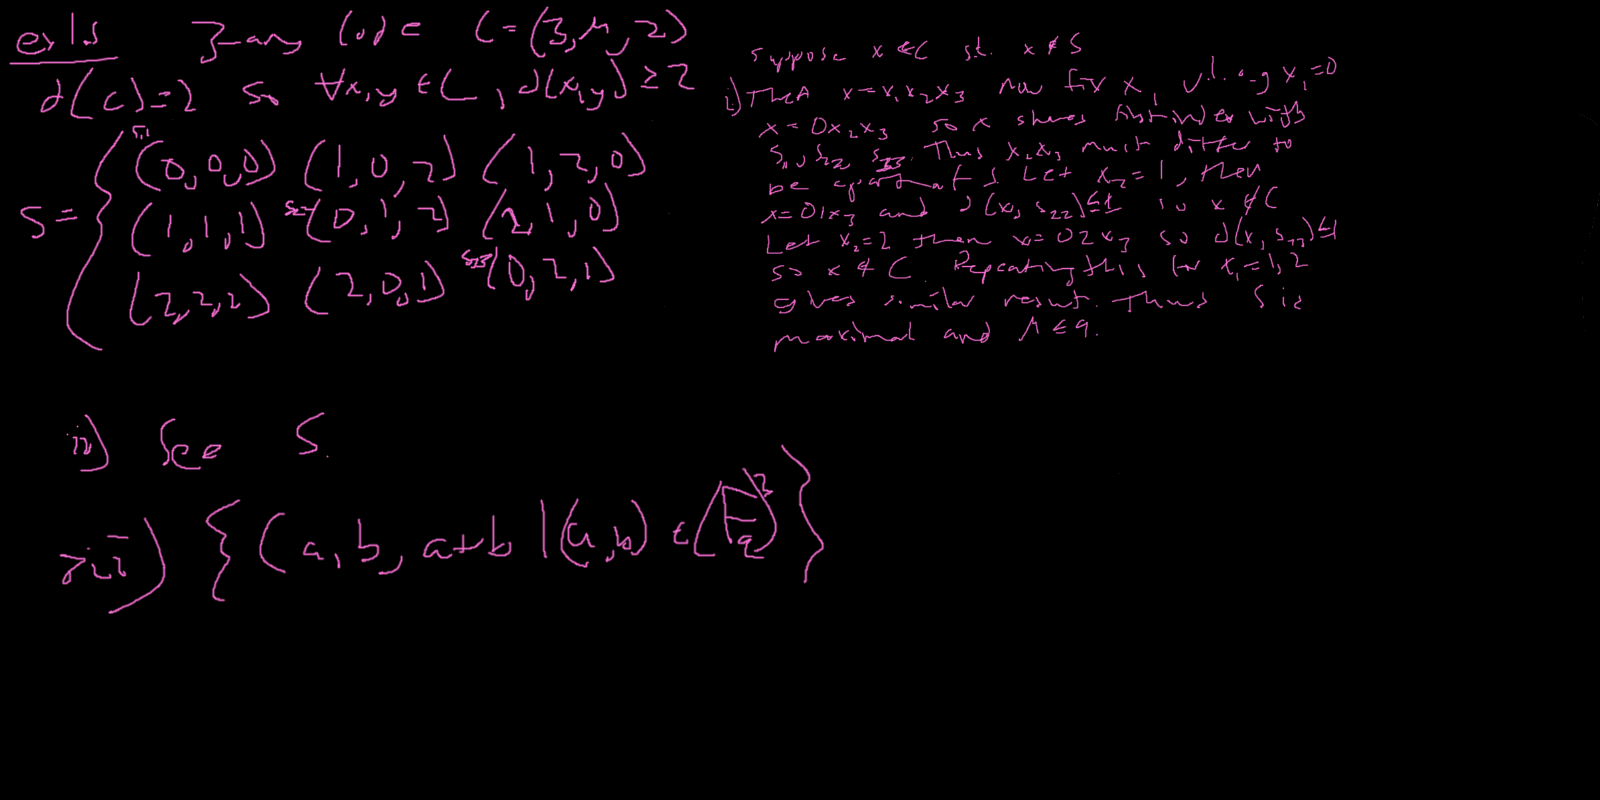 ex 1.5 3-ary Code C = (3, M, 2)
d(C) = 2 so ∀x,y ∈ C, d(x,y) ≥ 2
S = { s₁₁ (0,0,0) (1,0,2) (1,2,0)
(1,1,1) s₂₂ (0,1,2) (2,1,0)
(2,2,2) (2,0,1) s₃₃ (0,2,1)
Suppose x ∈ C st. x ∉ S
i) Then x = x₁x₂x₃ now fix x₁ w.l.o.g x₁=0
x = 0x₂x₃ so x shares first index with
s₁₁, s₂₂, s₃₃. Thus x₂x₃ must differ to
be apart of S. Let x₂ = 1, then
x = 01x₃ and d(x, s₂₂) ≤ 1 so x ∉ C
Let x₂=2 then x = 02x₃ so d(x, s₃₃) ≤ 1
so x ∉ C. Repeating this for x₁ = 1,2
gives similar result. Thus S is
maximal and M ≤ 9.
ii) See S.
iii) { (a, b, a+b | (a,b) ∈ (F_q)² }